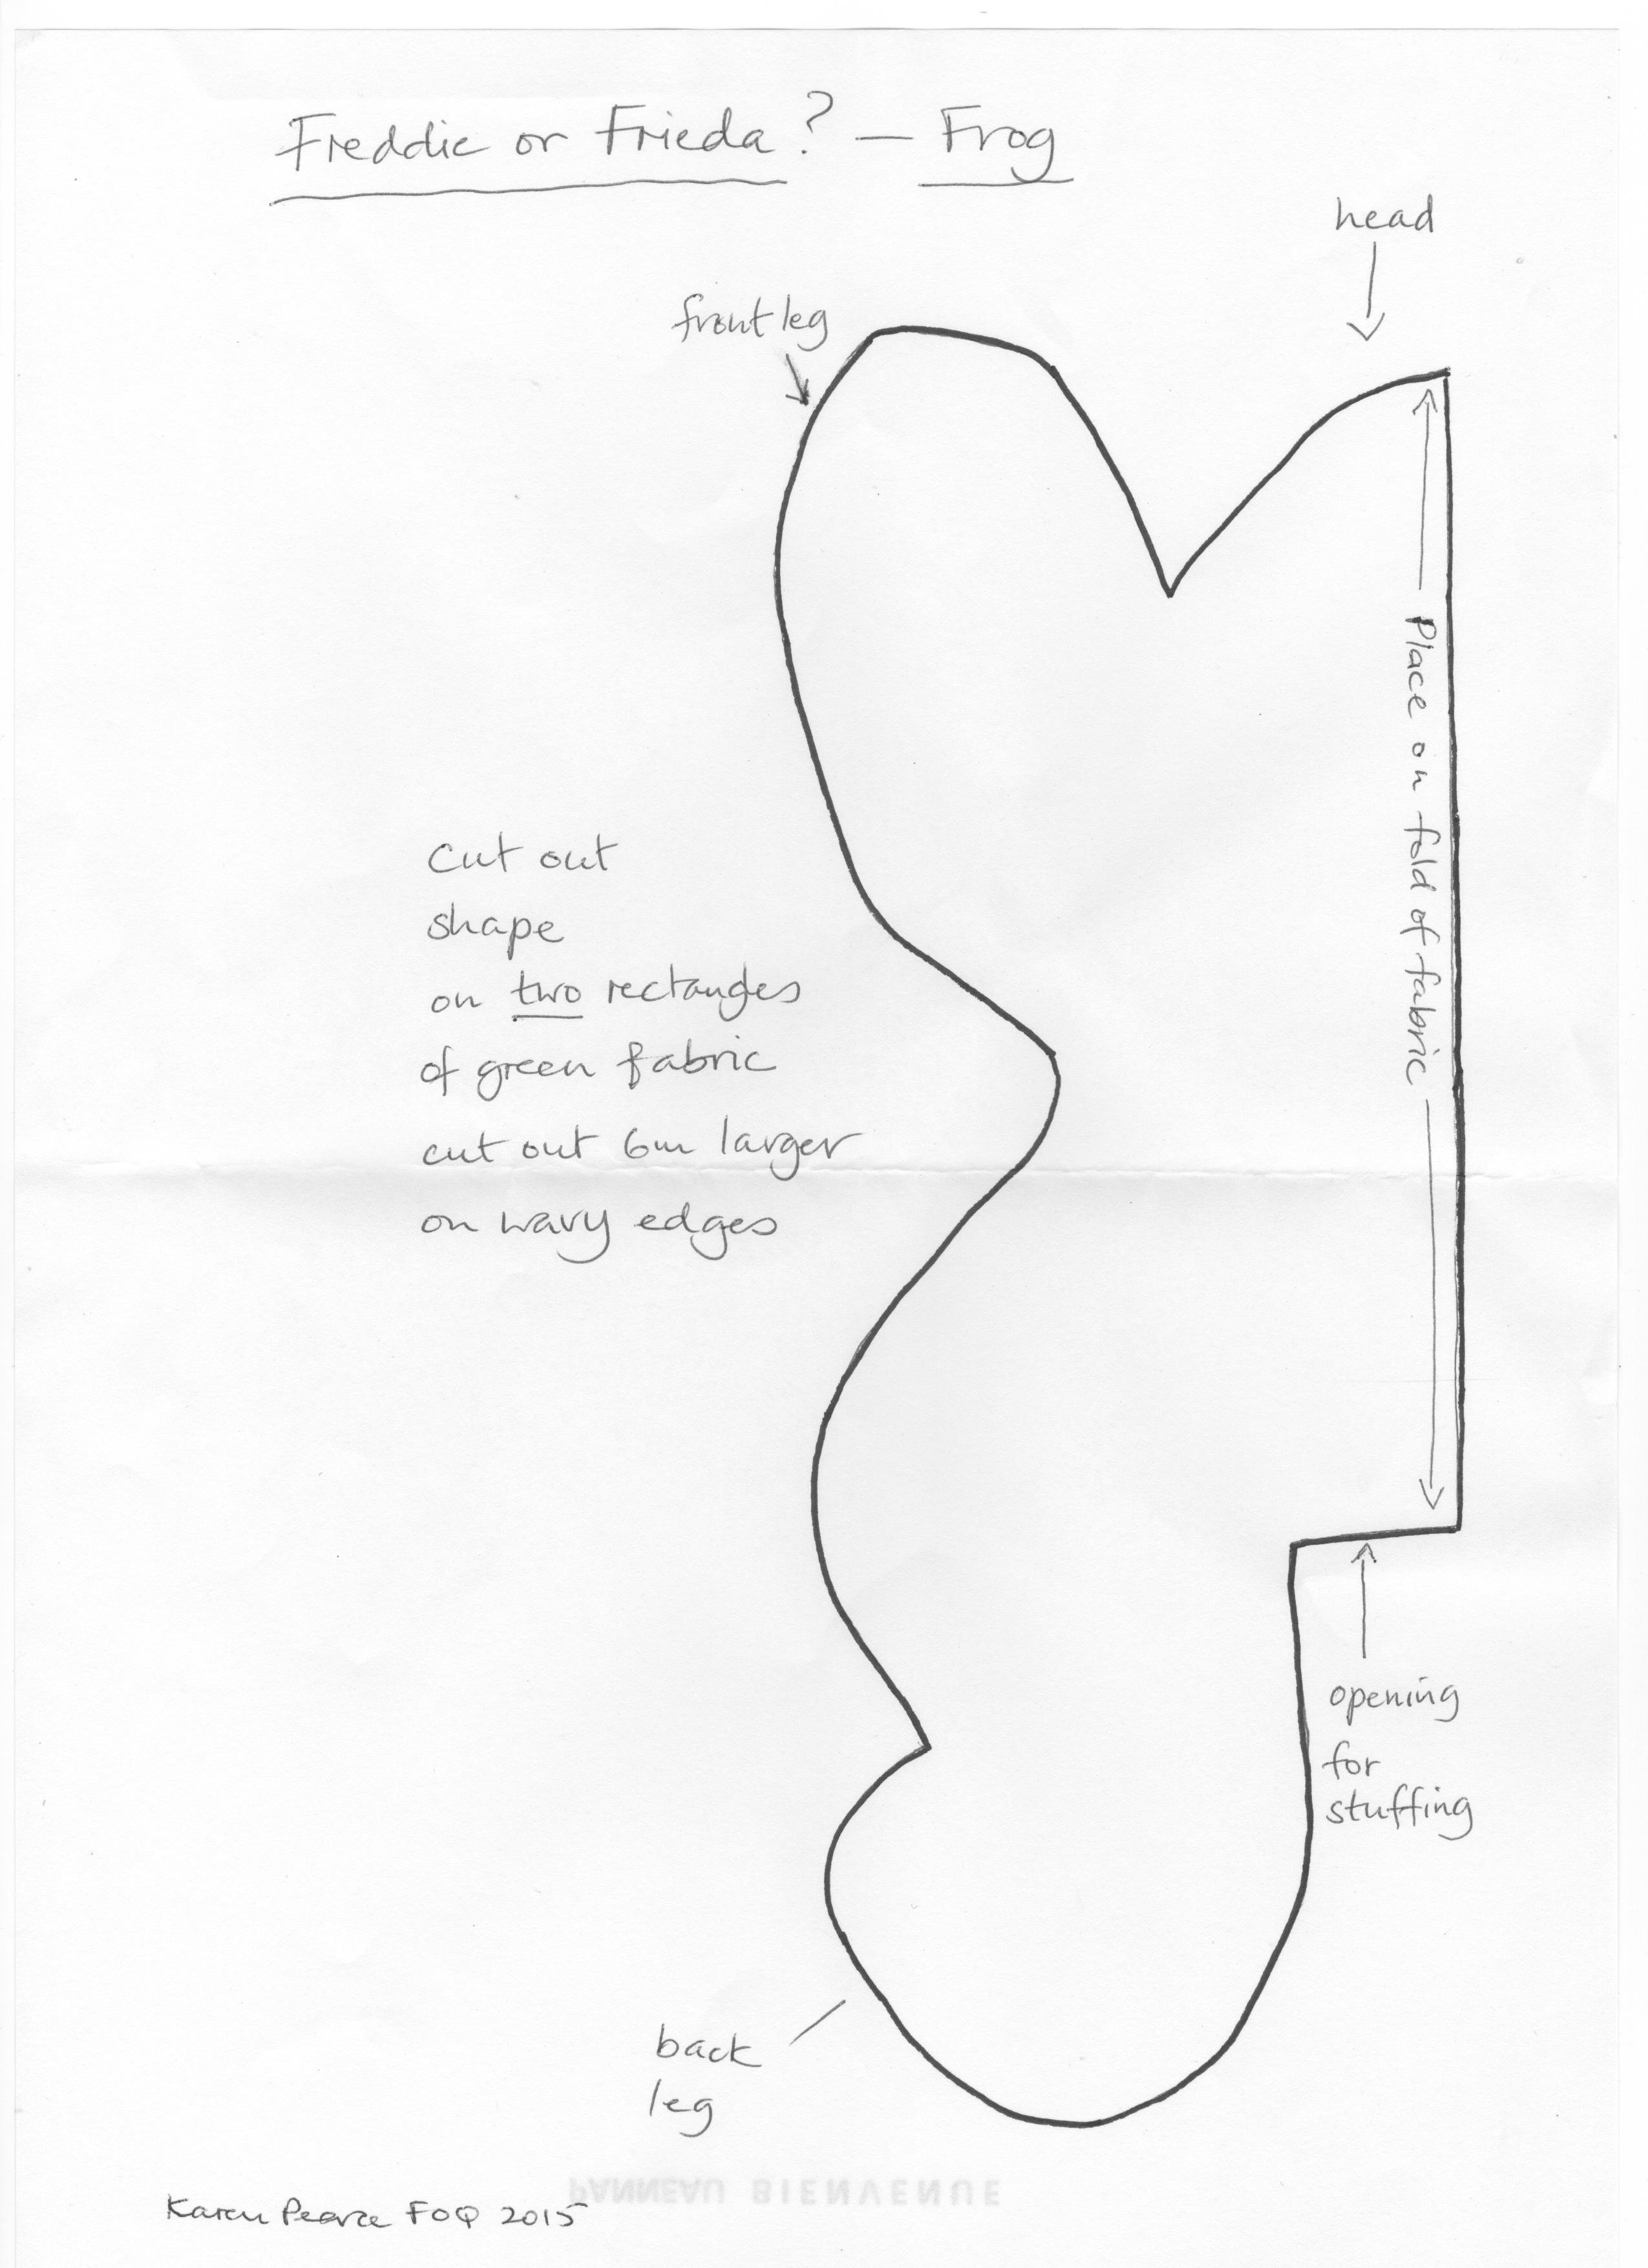 Freddie or Frieda? — Frog
head
front leg
Place on fold of fabric
cut out
shape
on two rectanges
of green fabric
cut out 6m larger
on wavy edges
opening
for
stuffing
back
leg
PANNEAU BIENVENUE
Karen Pearce FOQ 2015